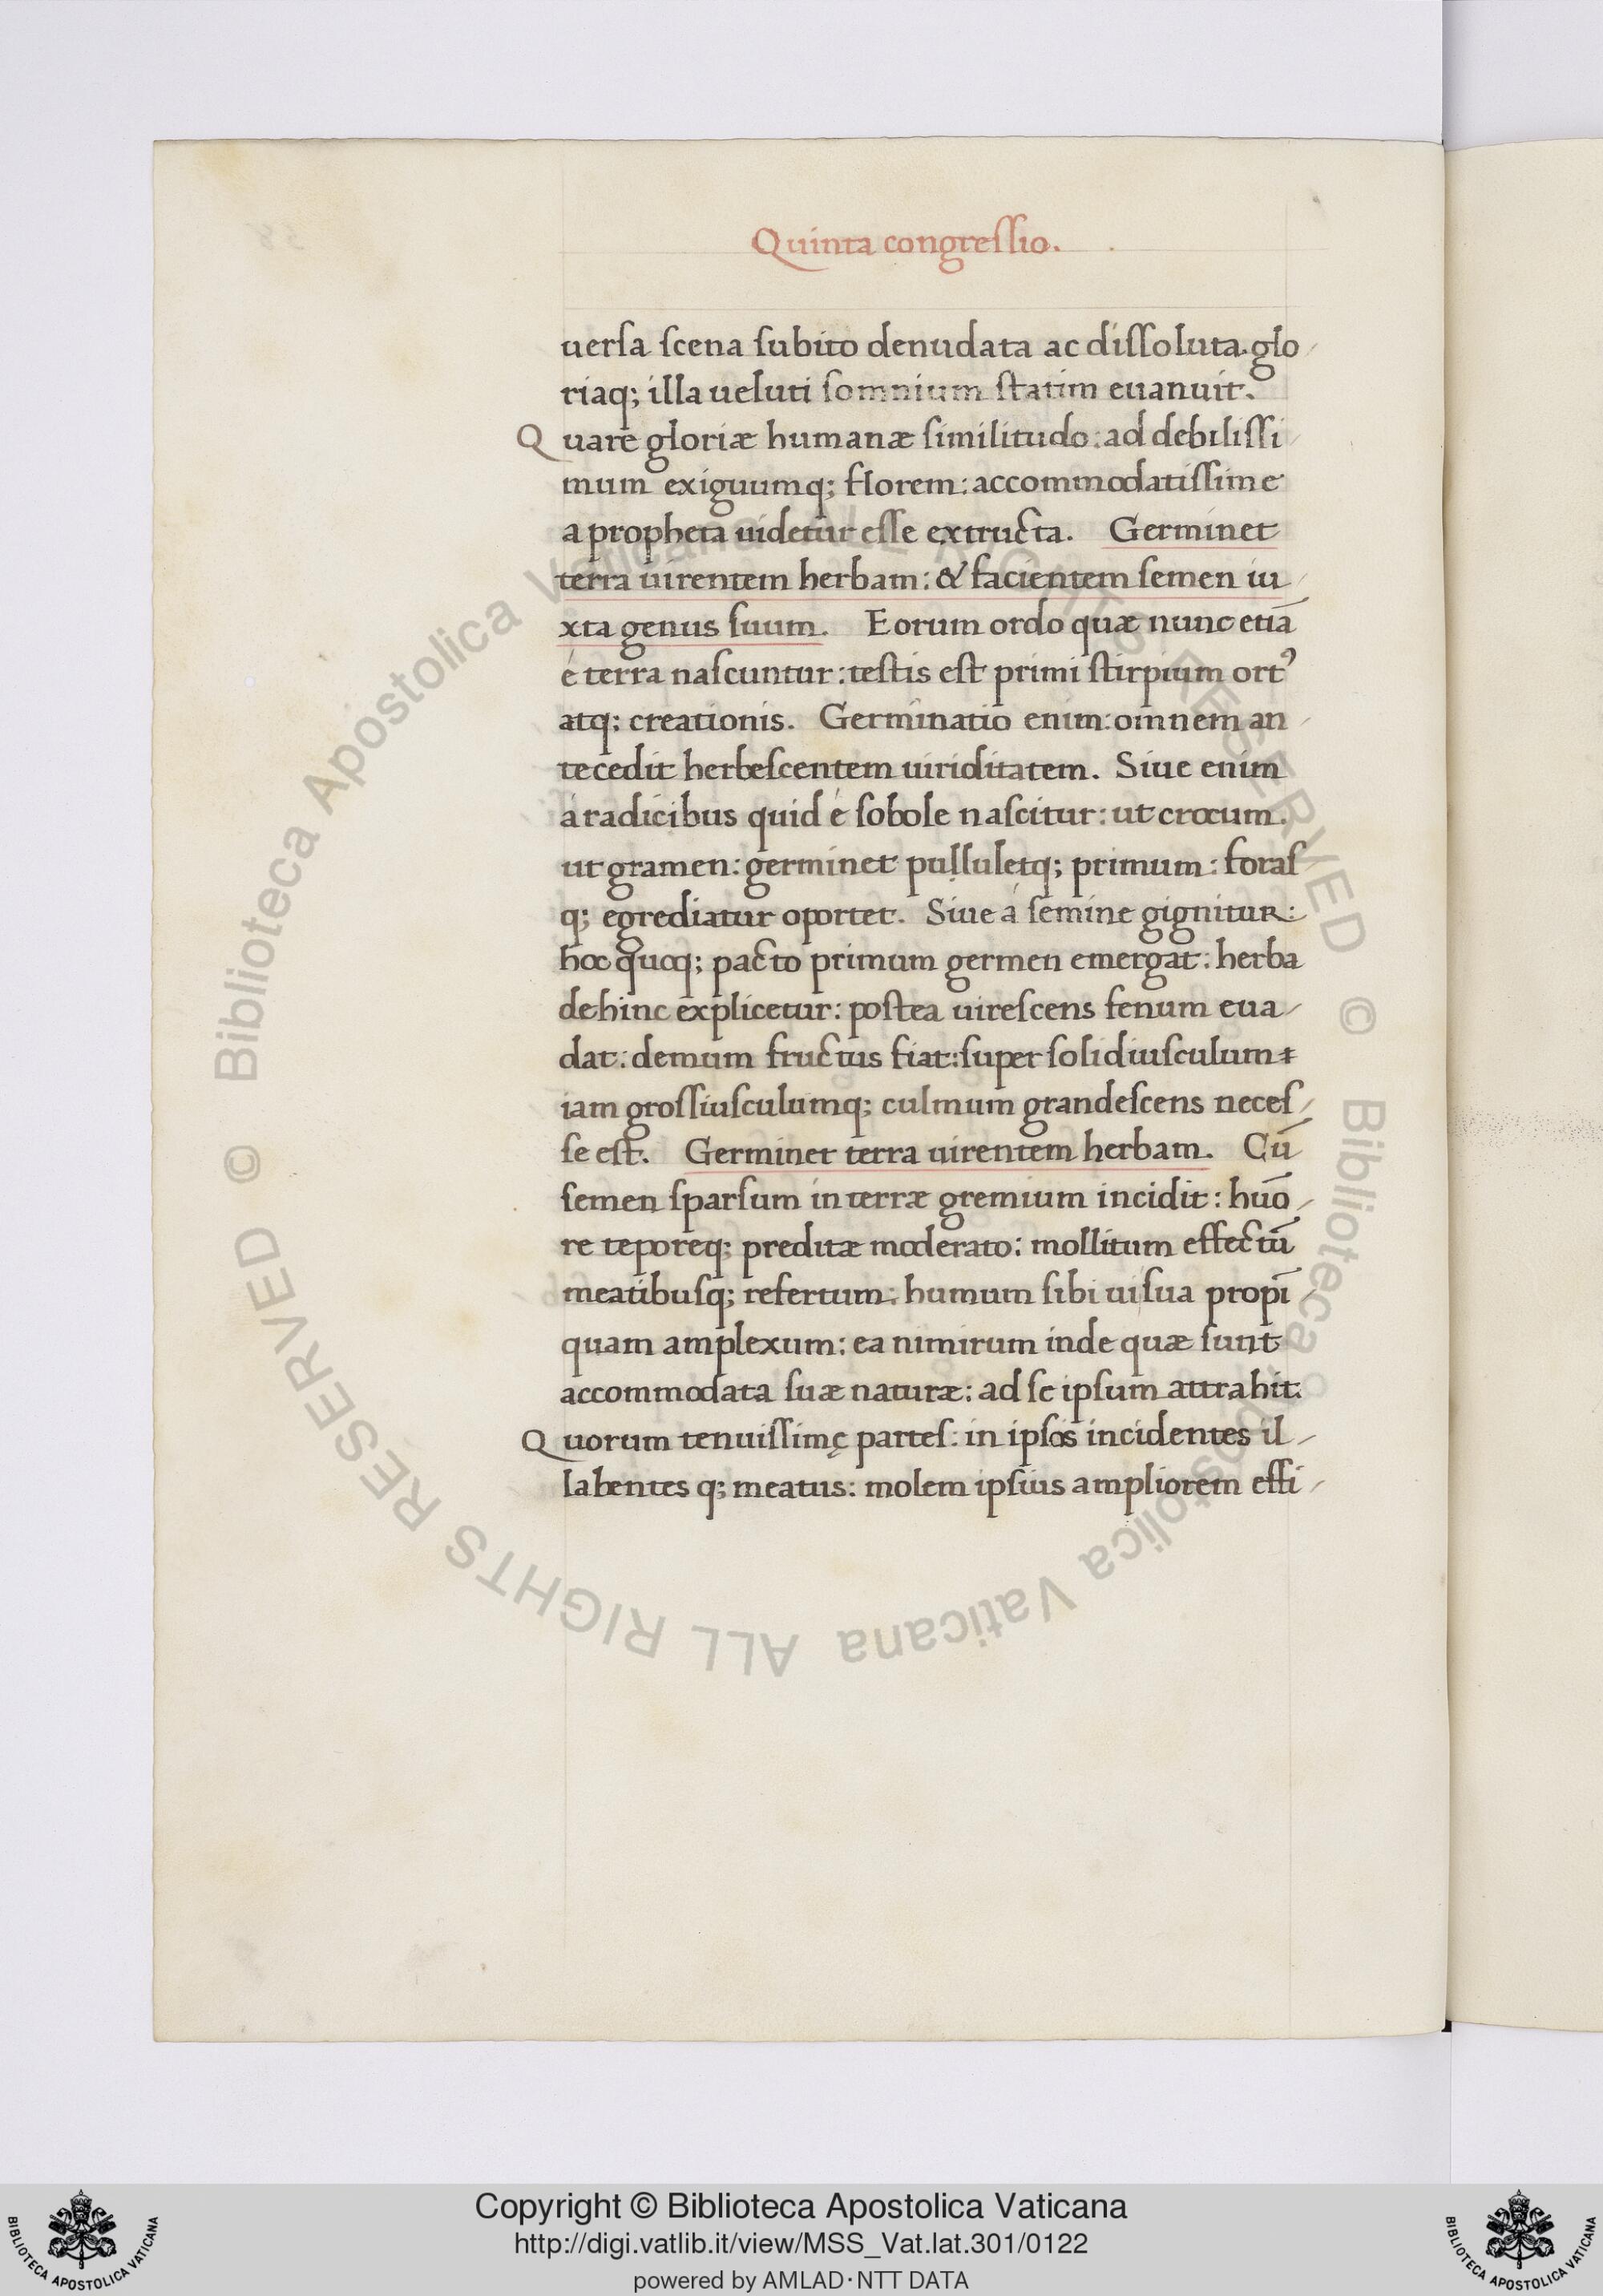 Quinta congreſſio.
uerſa ſcena ſubito denudata ac diſſoluta. glo
riaq; illa ueluti ſomnium ſtatim euanuit.
Quare gloriæ humanæ ſimilitudo: ad debiliſſi
mum exiguumq; florem: accommodatiſſime
a propheta uidetur eſſe extructa. Germinet
terra uirentem herbam: & facientem ſemen iu
xta genus ſuum. Eorum ordo quæ nunc etiā
é terra naſcuntur: teſtis eſt primi ſtirpium ortꝰ
atq; creationis. Germinatio enim: omnem an
tecedit herbeſcentem uiriditatem. Siue enim
á radicibus quid é ſobole naſcitur: ut crocum.
ut gramen: germinet pulluletq; primum: foraſ
q; egrediatur oportet. Siue á ſemine gignitur:
hoc quoq; pacto primum germen emergat: herba
dehinc explicetur: poſtea uireſcens fenum eua
dat: demum fructus fiat: super ſolidiuſculum &
iam groſſiuſculumq; culmum grandeſcens neceſ
ſe eſt. Germinet terra uirentem herbam. Cū
ſemen ſparſum in terræ gremium incidit: huō
re teporeq; preditæ moderato: mollitum effectū
meatibuſq; refertum: humum ſibi ui ſua propī
quam amplexum: ea nimirum inde quæ ſunt
accommodata ſuæ naturæ: ad ſe ipſum attrahit.
Quorum tenuiſſimę parteſ: in ipſos incidentes il
labentes q; meatus: molem ipſius ampliorem effi
© Biblioteca Apostolica Vaticana ALL RIGHTS RESERVED
© Biblioteca Apostolica Vaticana ALL RIGHTS RESERVED
Copyright © Biblioteca Apostolica Vaticana
http://digi.vatlib.it/view/MSS_Vat.lat.301/0122
powered by AMLAD·NTT DATA
BIBLIOTECA APOSTOLICA VATICANA
BIBLIOTECA APOSTOLICA VATICANA